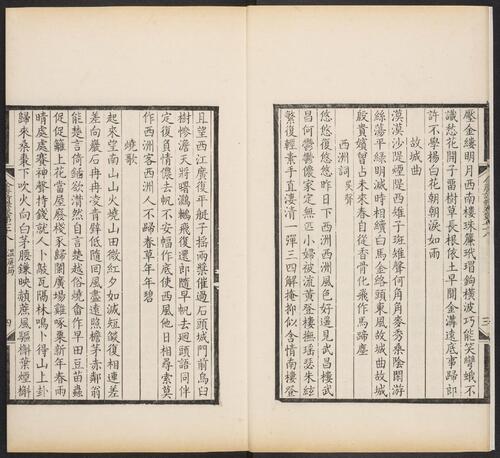 壓金縷明月西南樓珠簾玳瑁鉤橫波巧能笑彎蛾不
識愁花開子畱樹草長根依土早聞金溝遠底事歸郎
許不學楊白花朝朝淚如雨
故城曲
漠漠沙隄煙隄西雉子斑雉聲何角角麥秀桑陰閑游
絲蕩平綠明滅時相續白馬金絡頭東風故城曲故城
殷貴嬪曾占未來春自從香骨化飛作馬蹄塵
西洲詞 吳聲
悠悠復悠悠昨日下西洲西洲風色好遙見武昌樓武
昌何鬱鬱儂家定無匹小婦被流黃登樓撫瑤瑟朱絃
繁復輕素手直淒清一彈三四解掩抑似含情南樓登
且望西江廣復平艇子搖兩槳催過石頭城門前烏臼
樹慘澹天將曙鸂鶒飛復還郎隨早帆去迴頭語同伴
定復負情儂去帆不安幅作底使西風他日相尋索莫
作西洲客西洲人不歸春草年年碧
燒歌
起來望南山山火燒山田微紅夕如滅短燄復相連差
差向巖石冉冉凌青壁低隨回風盡遠照檐茅赤鄰翁
能楚言倚鍤欲潸然自言楚越俗燒畬作早田豆苗蟲
促促籬上花當屋廢棧豕歸闌廣場雞啄粟新年春雨
晴處處賽神聲持錢就人卜敲瓦隔林鳴卜得山上卦
歸來桑棗下吹火向白茅腰鐮映赬蔗風驅槲葉煙槲
四